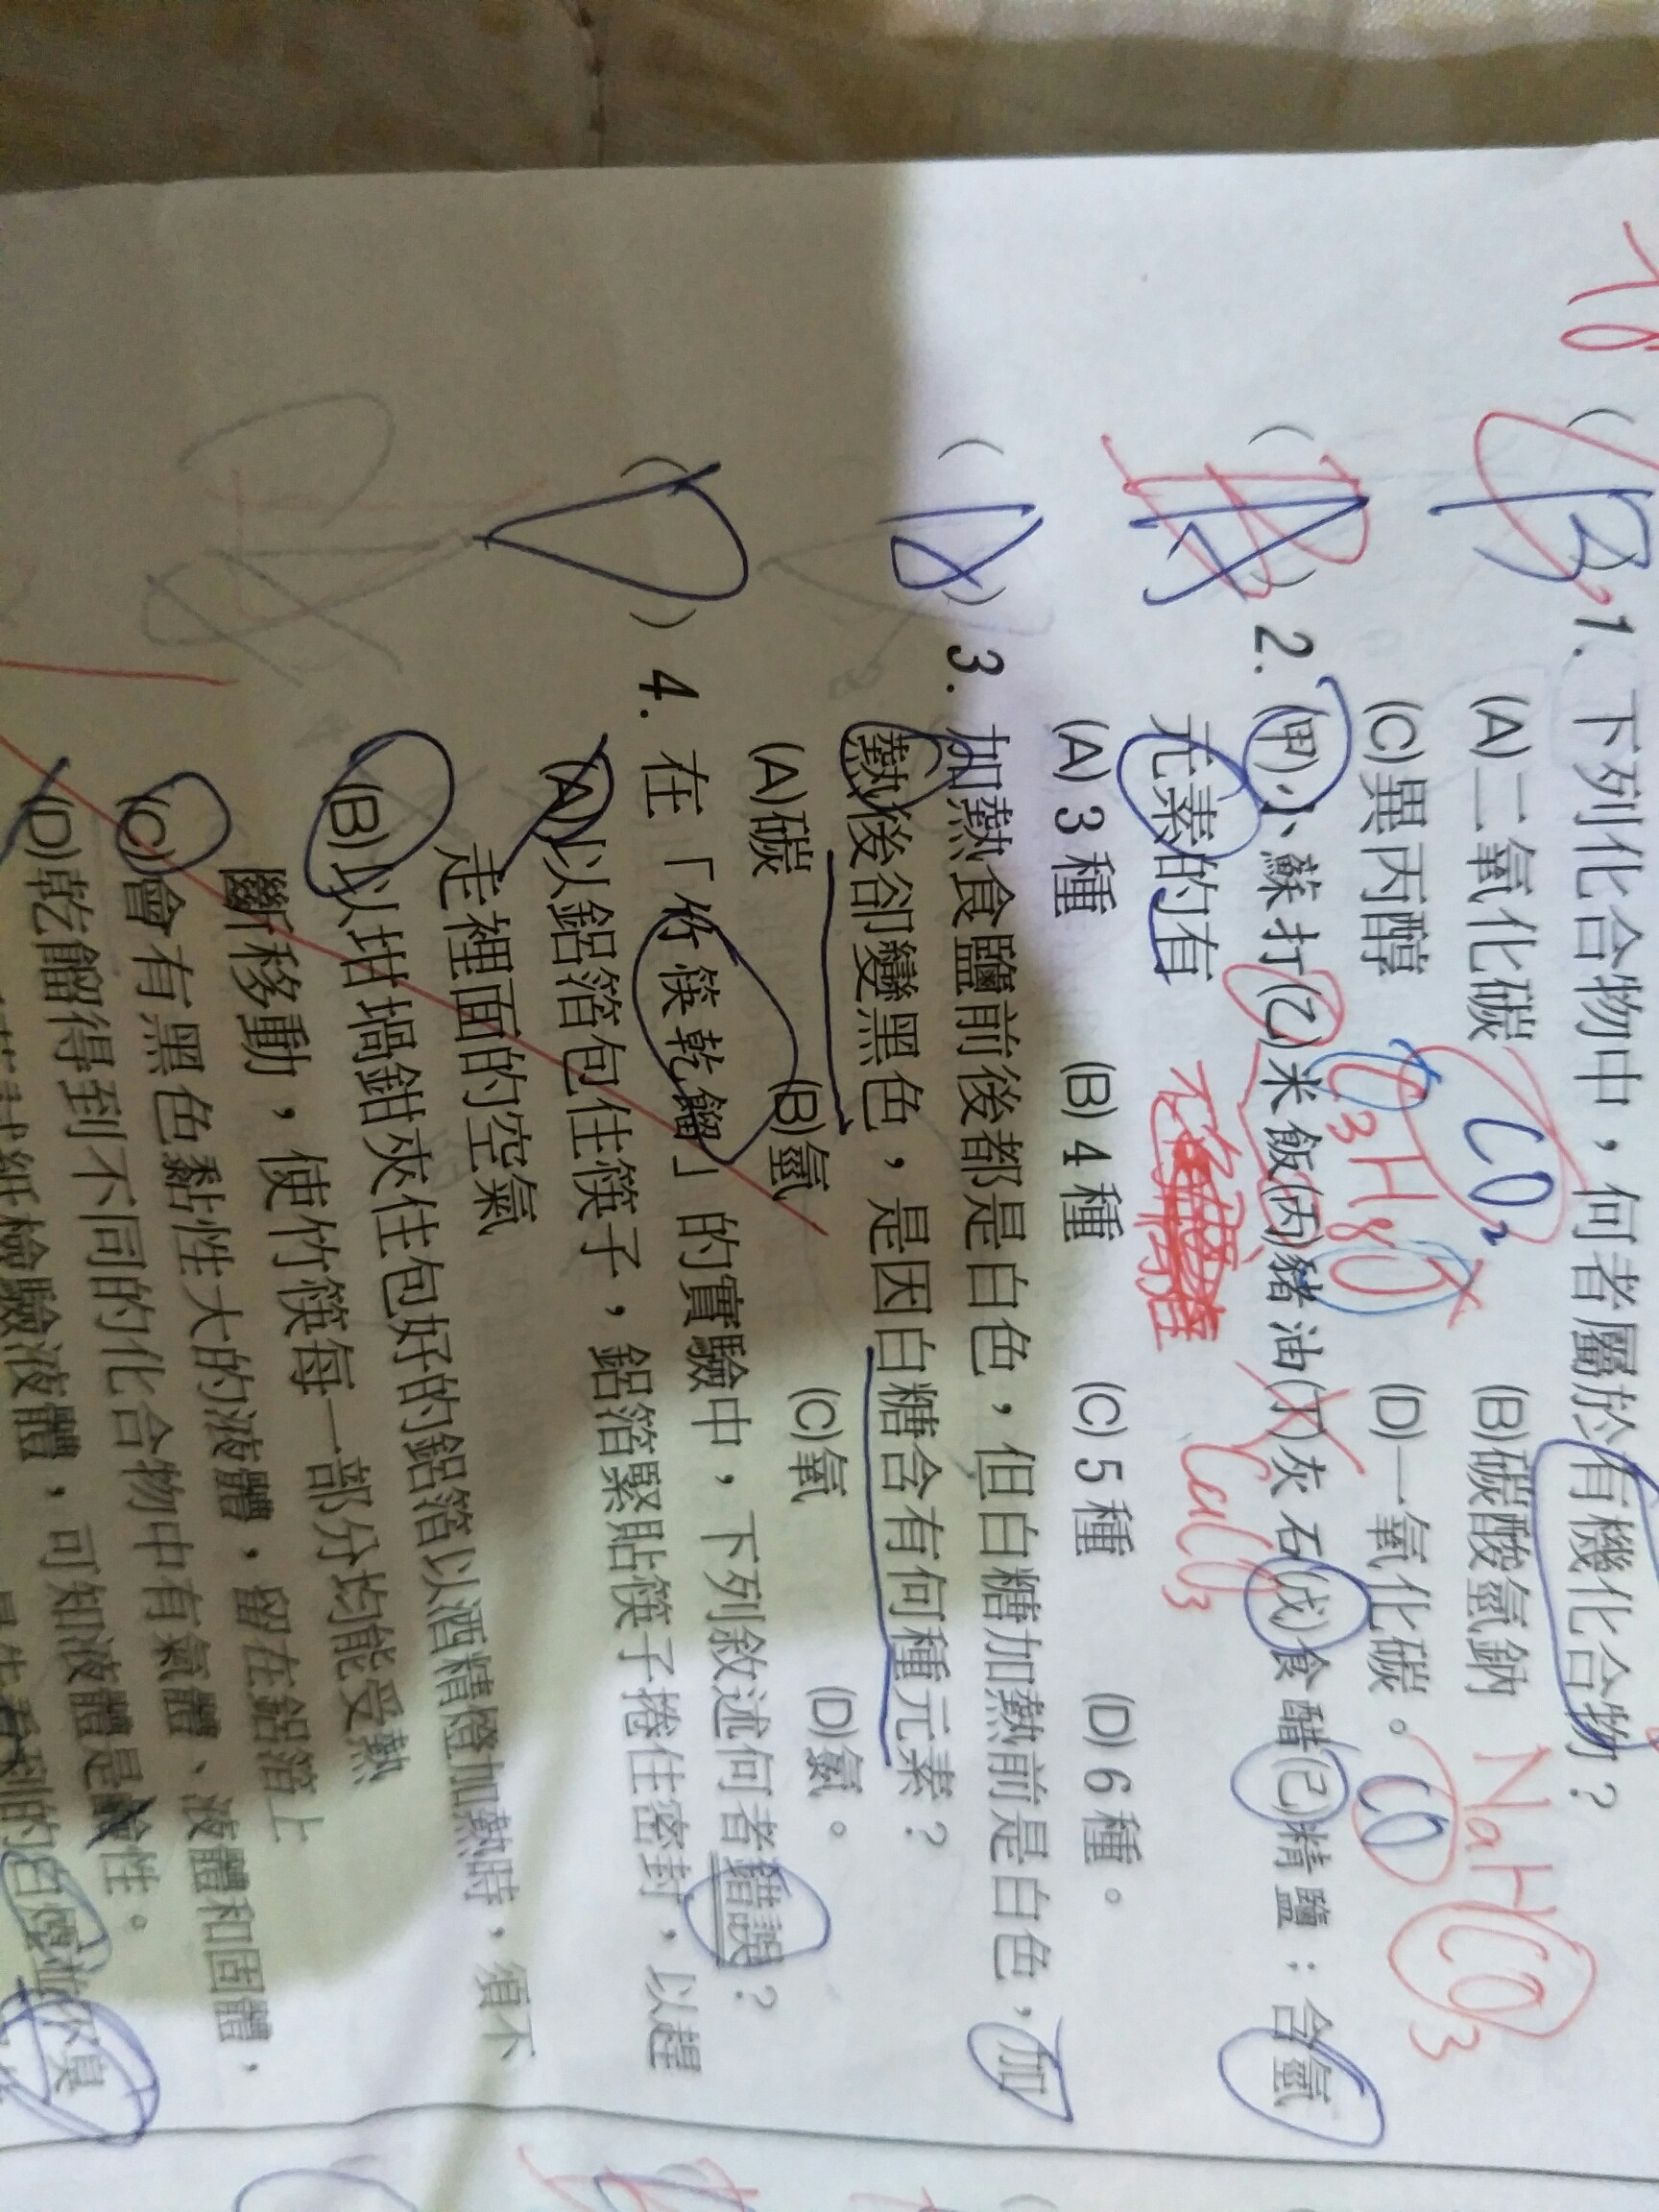 1. 下列化合物中，何者屬於有機化合物？
(A)二氧化碳 CO2 (B)碳酸氫鈉 NaHCO3
(C)異丙醇 C3H8O (D)一氧化碳。 CO
2. (甲)小蘇打(乙)米飯(丙)豬油(丁)灰石(戊)食醋(己)精鹽：含氫
元素的有 CaCO3
(A) 3 種 (B) 4 種 (C) 5 種 (D) 6 種。
3. 加熱食鹽前後都是白色，但白糖加熱前是白色，加
熱後卻變黑色，是因白糖含有何種元素？
(A)碳 (B)氫 (C)氧 (D)氮。
4. 在「竹筷乾餾」的實驗中，下列敘述何者錯誤？
(A)以鋁箔包住筷子，鋁箔緊貼筷子捲住密封，以趕
走裡面的空氣
(B)以坩堝鉗夾住包好的鋁箔以酒精燈加熱時，須不
斷移動，使竹筷每一部分均能受熱
(C)會有黑色黏性大的液體，留在鋁箔上
(D)乾餾得到不同的化合物中有氣體、液體和固體，
試紙檢驗液體，可知液體是性。